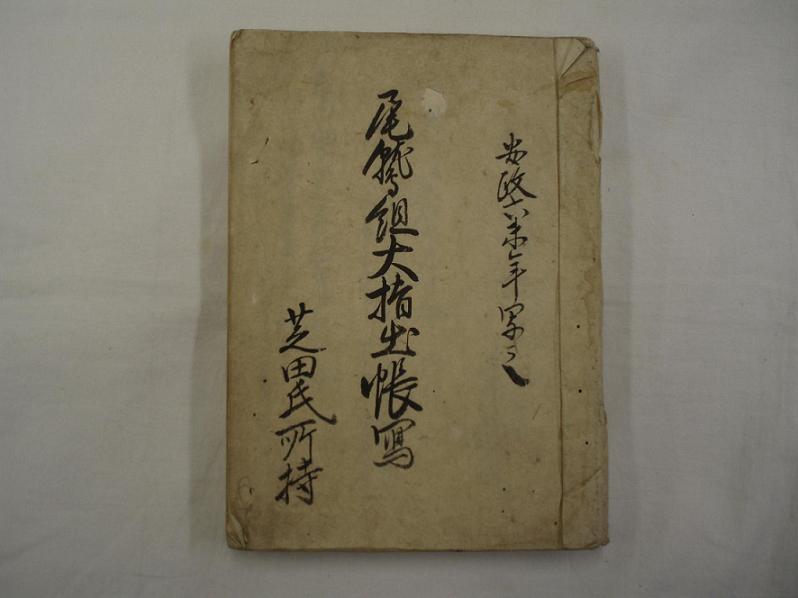 安政六未年写之
尾鷲組大指出帳寫
芝田氏所持